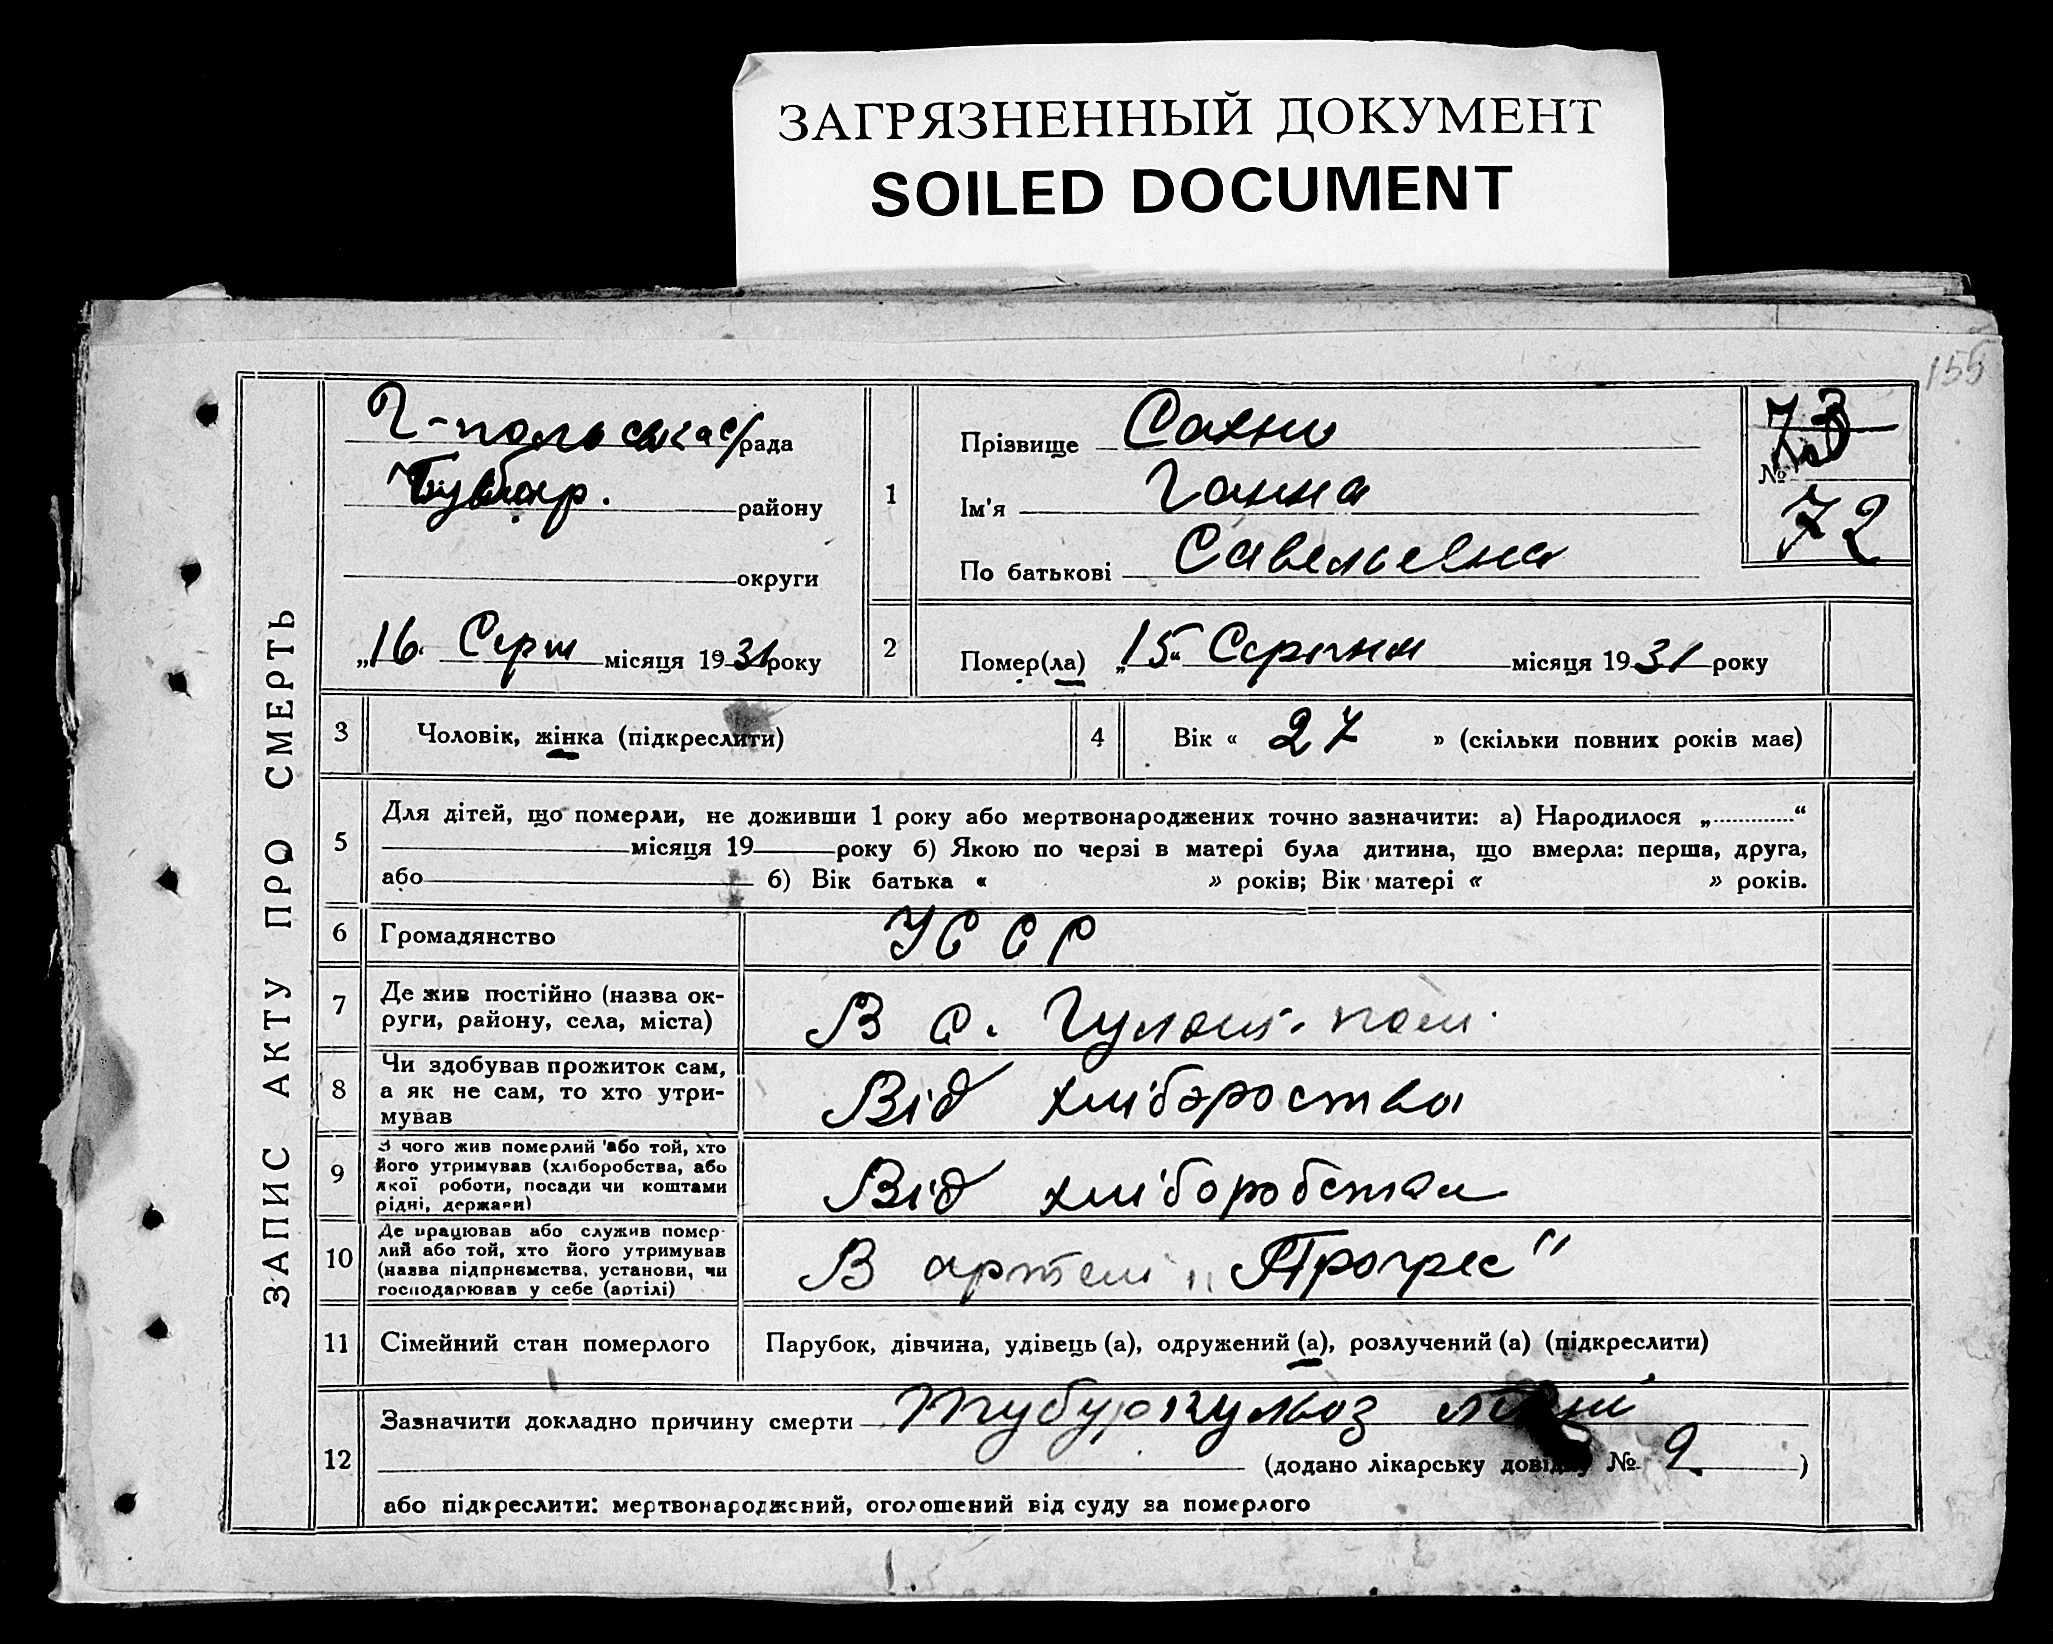 ЗАГРЯЗНЕННЫЙ ДОКУМЕНТ
SOILED DOCUMENT
155
ЗАПИС АКТУ ПРО СМЕРТЬ
Г-польська с/рада
району
округи
„16“ Серп місяця 1931 року
1
Прізвище Сахно
Ім'я Ганна
По батькові Савельевна
73
№
72
2
Помер(ла) „15“ Серпня місяця 1931 року
3
Чоловік, жінка (підкреслити)
4
Вік « 27 » (скільки повних років має)
5
Для дітей, що померли, не доживши 1 року або мертвонароджених точно зазначити: а) Народилося „ “
місяця 19 року б) Якою по черзі в матері була дитина, що вмерла: перша, друга,
або б) Вік батька « » років; Вік матері « » років.
6
Громадянство
УССР
7
Де жив постійно (назва ок-
руги, району, села, міста)
В с. Гуляй-пол.
8
Чи здобував прожиток сам,
а як не сам, то хто утри-
мував
Від
9
З чого жив померлий або той, хто
його утримував (хліборобства, або
якої роботи, посади чи коштами
рідні, держави)
Від хліборобства
10
Де працював або служив помер-
лий або той, хто його утримував
(назва підприємства, установи, чи
господарював у себе (артілі)
В артелі „Прогрес"
11
Сімейний стан померлого
Парубок, дівчина, удівець (а), одружений (а), розлучений (а) (підкреслити)
12
Зазначити докладно причину смерти тубуркульоз
(додано лікарську довідку № 9 )
або підкреслити: мертвонароджений, оголошений від суду за померлого